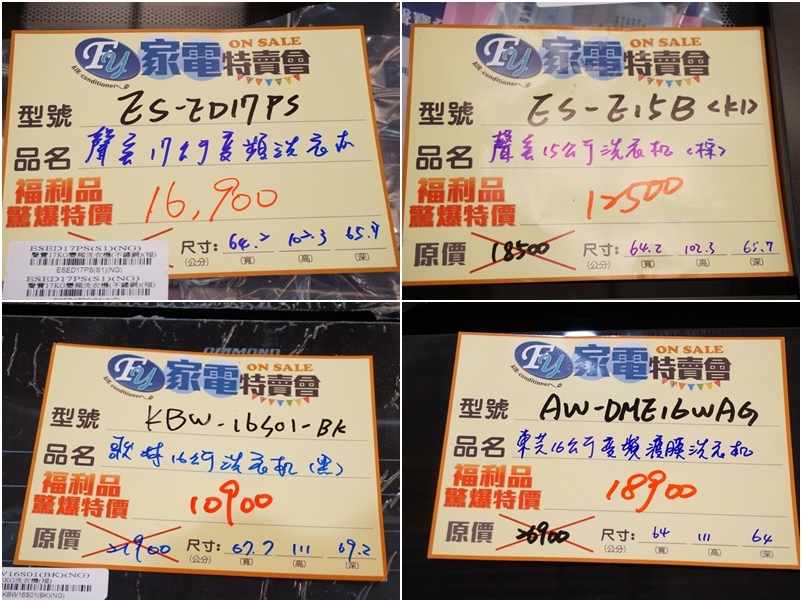 FU 家電特賣會 ON SALE
AIR conditioner
型號 ES-ED17PS
品名 聲宝17公斤变頻洗衣机
福利品
驚爆特價 16,900
尺寸: 64.2 102.3 65.7
(公分) (寬) (高) (深)
ESED17PS(S1)(NG)
聲寶17KG變頻洗衣機(不鏽鋼)(福)
ESED17PS(S1)(NG)
ESED17PS(S1)(NG)
聲寶17KG變頻洗衣機(不鏽鋼)(福)
FU 家電特賣會 ON SALE
AIR conditioner
型號 ES-E15B(K1)
品名 聲宝15公斤洗衣机(棕)
福利品
驚爆特價 12500
原價 18500 尺寸: 64.2 102.3 65.7
(公分) (寬) (高) (深)
DIAMOND
FU 家電特賣會 ON SALE
AIR conditioner
型號 KBW-16S01-BK
品名 歌林16公斤洗衣机(黑)
福利品
驚爆特價 10900
原價 21900 尺寸: 67.7 111 69.2
(公分) (寬) (高) (深)
W16S01(BK)(NG)
KG洗衣機(福)
KBW16S01(BK)(NG)
FU 家電特賣會 ON SALE
AIR conditioner
型號 AW-DME16WAG
品名 東芝16公斤变頻鍍膜洗衣机
福利品
驚爆特價 18900
原價 26900 尺寸: 64 111 64
(公分) (寬) (高) (深)